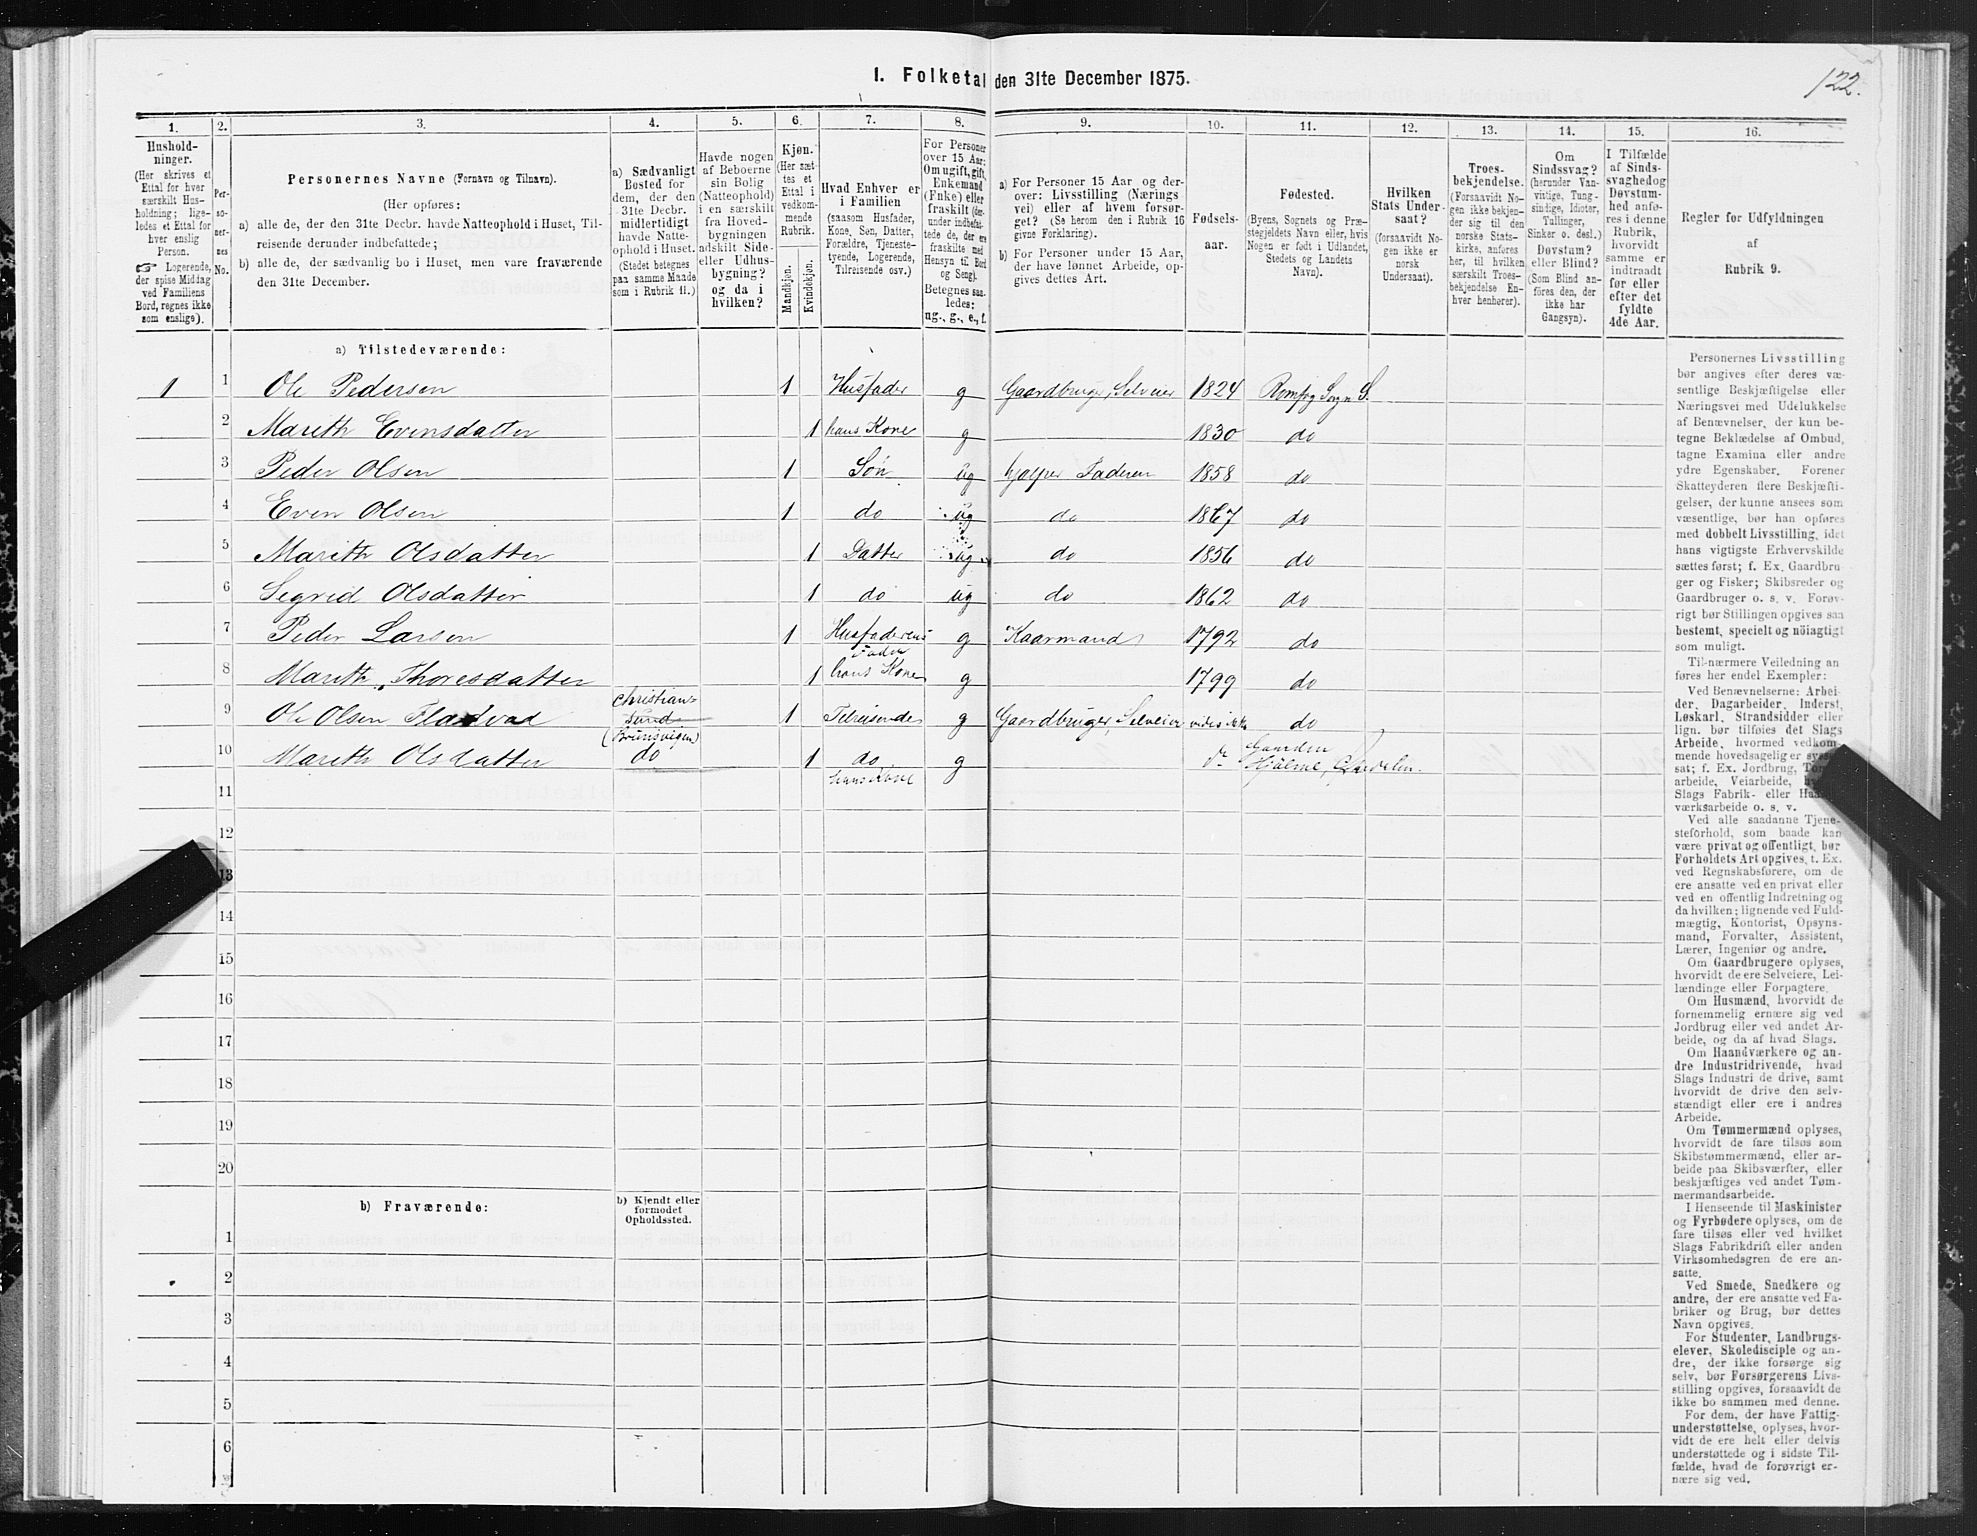 I. Folketal den 31te December 1875.
122.
1. 2. 3. 4. 5. 6. 7. 8. 9. 10. 11. 12. 13. 14. 15. 16.
Hushold-
ninger.
(Her skrives et
Ettal for hver
særskilt Hus-
holdning; lige-
ledes et Ettal for
hver enslig
Person.
☞ Logerende,
der spise Middag
ved Familiens
Bord, regnes ikke
som enslige).
Per-
so-
ner-
nes
No.
Personernes Navne (Fornavn og Tilnavn).
(Her opføres:
a) alle de, der den 31te Decbr. havde Natteophold i Huset, Til-
reisende derunder indbefattede;
b) alle de, der sædvanlig bo i Huset, men vare fraværende
den 31te December.
a) Sædvanligt
Bosted for
dem, der den
31te Decbr.
midlertidigt
havde Natte-
ophold i Huset.
(Stedet betegnes
paa samme Maade
som i Rubrik 11.)
Havde nogen
af Beboerne
sin Bolig
(Natteophold)
i en særskilt
fra Hoved-
bygningen
adskilt Side-
eller Udhus-
bygning?
og da i
hvilken?
Kjøn.
(Her sæt-
tes et
Ettal i
vedkom-
mende
Rubrik.
Mandkjøn.
Kvindekjøn.
Hvad Enhver er
i Familien
(saasom Husfader,
Kone, Søn, Datter,
Forældre, Tjeneste-
tyende, Logerende,
Tilreisende osv.)
For Personer
over 15 Aar:
Om ugift, gift,
Enkemand
(Enke) eller
fraskilt (der-
under indbefat-
tede de, der ere
fraskilte med
Hensyn til Bord
og Seng).
Betegnes saa-
ledes:
ug., g., e., f.
a) For Personer 15 Aar og der-
over: Livsstilling (Nærings
vei) eller af hvem forsør-
get? (Se herom den i Rubrik 16
givne Forklaring).
b) For Personer under 15 Aar,
der have lønnet Arbeide, op-
gives dettes Art.
Fødsels-
aar.
Fødested.
(Byens, Sognets og Præ-
stegjeldets Navn eller, hvis
Nogen er født i Udlandet,
Stedets og Landets
Navn).
Hvilken
Stats Under-
saat?
(forsaavidt No-
gen ikke er
norsk
Undersaat).
Troes-
bekjendelse.
(Forsaavidt No-
gen ikke bekjen-
der sig til den
norske Stats-
kirke, anføres
her, til hvilken
særskilt Troes-
bekjendelse En-
hver henhører).
Om
Sindssvag?
(herunder Van-
vittige, Tung-
sindige, Idioter,
Tullinger,
Sinker o. desl.)
Døvstum?
eller Blind?
(Som Blind an-
føres den, der
ikke har
Gangsyn).
I Tilfælde
af Sinds-
svaghed og
Døvstum-
hed anfø-
res i denne
Rubrik,
hvorvidt
samme er
indtraadt
før eller
efter det
fyldte
4de Aar.
Regler for Udfyldningen
af
Rubrik 9.
a) Tilstedeværende:
1 1 Ole Pedersen 1 Husfader g Gaardbruger, Selveier 1824 Romfog Sogn S.
2 Marith Evensdatter 1 hans Kone g 1830 do
3 Peder Olsen 1 Søn ug hjælper Faderen 1858 do
4 Even Olsen 1 do ug do 1867 do
5 Marith Olsdatter 1 Datter ug do 1856 do
6 Segrid Olsdatter 1 do ug do 1862 do
7 Peder Larsen 1 Husfaderens Fader g Kaarmand 1792 do
8 Marith Thoresdatter 1 hans Kone g 1799 do
9 Ole Olsen Fladvad Christian-
sund
(Brunsvigen) 1 Tilreisende g Gaardbruger, Selveier vides ikke do
10 Marith Olsdatter do 1 do
hans Kone g do Gaarden
Hjälme,
11
12
13
14
15
16
17
18
19
20
b) Fraværende: b) Kjendt eller
formodet
Opholdssted.
1
2
3
4
5
6
Personernes Livsstilling
bør angives efter deres væ-
sentlige Beskjæftigelse eller
Næringsvei med Udelukkelse
af Benævnelser, der kun be-
tegne Beklædelse af Ombud,
tagne Examina eller andre
ydre Egenskaber. Forener
Skatteyderen flere Beskjæfti-
gelser, der kunne ansees som
væsentlige, bør han opføres
med dobbelt Livsstilling, idet
hans vigtigste Erhvervskilde
sættes først; f. Ex. Gaardbru-
ger og Fisker; Skibsreder og
Gaardbruger o. s. v. Forøv-
rigt bør Stillingen opgives saa
bestemt, specielt og nöiagtigt
som muligt.
Til nærmere Veiledning an
føres her endel Exempler:
Ved Benævnelserne: Arbei-
der, Dagarbeider, Inderst,
Løskarl, Strandsidder eller
lign. bør tilføies det Slags
Arbeide, hvormed vedkom-
mende hovedsagelig er syssel-
sat; f. Ex. Jordbrug,
arbeide, Veiarbeide,
Slags Fabrik- eller
værksarbeide o. s. v.
Ved alle saadanne Tjene-
steforhold, som baade kan
være privat og offentligt, bør
Forholdets Art opgives, t. Ex.
ved Regnskabsførere, om de
ere ansatte ved en privat eller
ved en offentlig Indretning og
da hvilken; lignende ved Fuld-
mægtig, Kontorist, Opsyns-
mand, Forvalter, Assistent,
Lærer, Ingeniør og andre.
Om Gaardbrugere oplyses,
hvorvidt de ere Selveiere, Lei-
lændinge eller Forpagtere.
Om Husmænd, hvorvidt de
fornemmelig ernære sig ved
Jordbrug eller ved andet Ar-
beide, og da af hvad Slags.
Om Haandværkere og an-
dre Industridrivende, hvad
Slags Industri de drive, samt
hvorvidt de drive den selv-
stændigt eller ere i andres
Arbeide.
Om Tømmermænd oplyses,
hvorvidt de fare tilsøs som
Skibstømmermænd, eller ar-
beide paa Skibsværfter, eller
beskjæftiges ved andet Tøm-
mermandsarbeide.
I Henseende til Maskinister
og Fyrbødere oplyses, om de
fare tilsøs eller ved hvilket
Slags Fabrikdrift eller anden
Virksomhedsgren de ere an-
satte.
Ved Smede, Snedkere og
andre, der ere ansatte ved Fa-
briker og Brug, bør dettes
Navn opgives.
For Studenter, Landbrugs-
elever, Skoledisciple og an-
dre, der ikke forsørge sig
selv, bør Forsørgerens Livs-
stilling opgives, forsaavidt de
ikke bo sammen med denne.
For dem, der have Fattig-
understøttelse, oplyses, hvor-
vidt de ere helt eller delvis
understøttede og i sidste Til-
fælde, hvad de forøvrigt er-
nære sig ved.